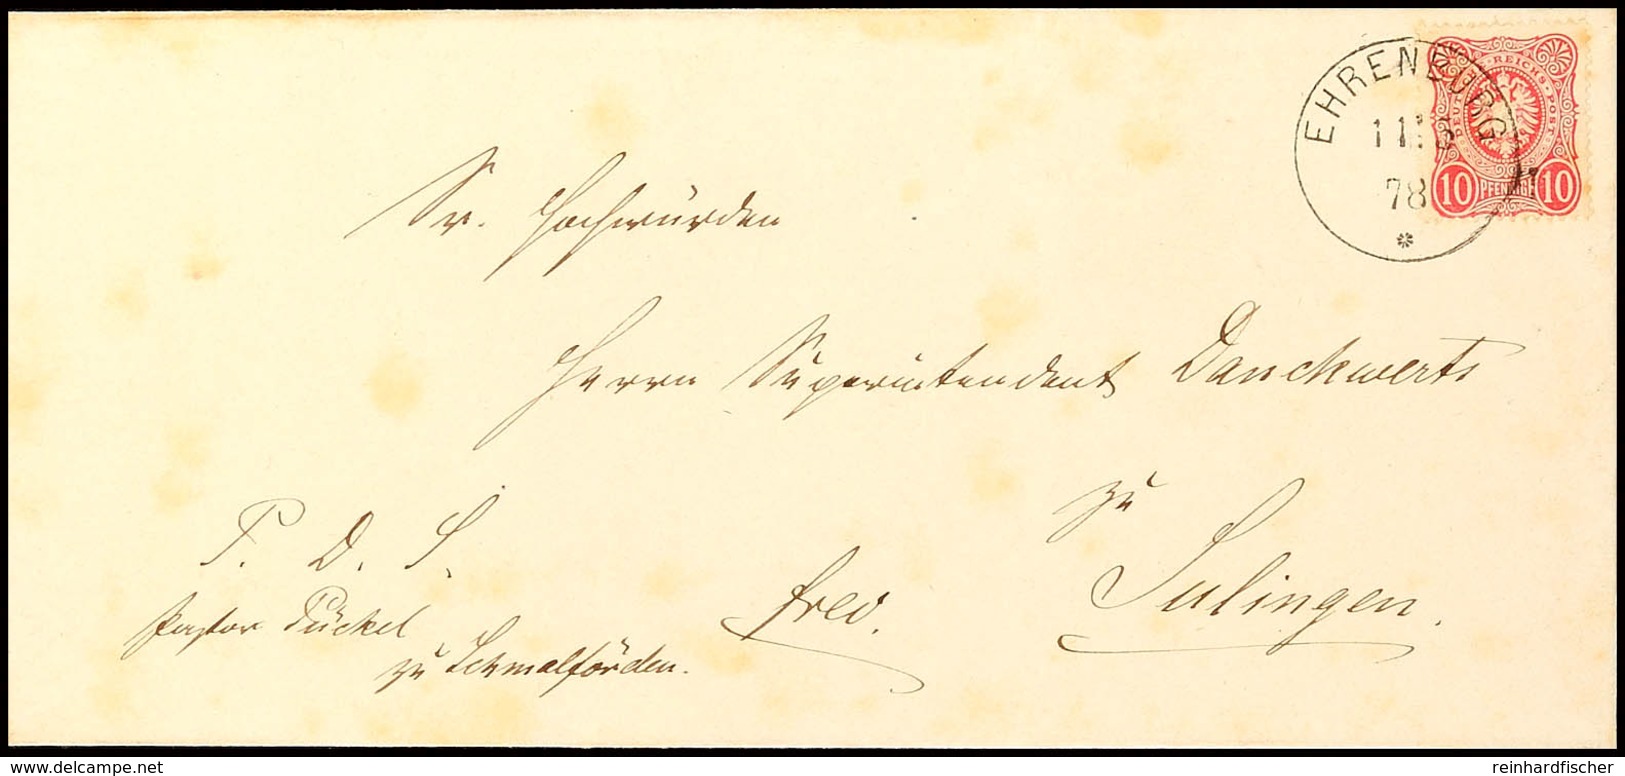 EHRENBURG
11
78
DEUTSCHE REICHS-POST
10 PFENNIGE 10
Sr. Hochwürden
Herrn Superintendent Danckwerts
zu
Sulingen.
P. D. S.
Pastor Pückel
zu Schmalförden.
frei.
www.delcampe.net
reinhardfischer